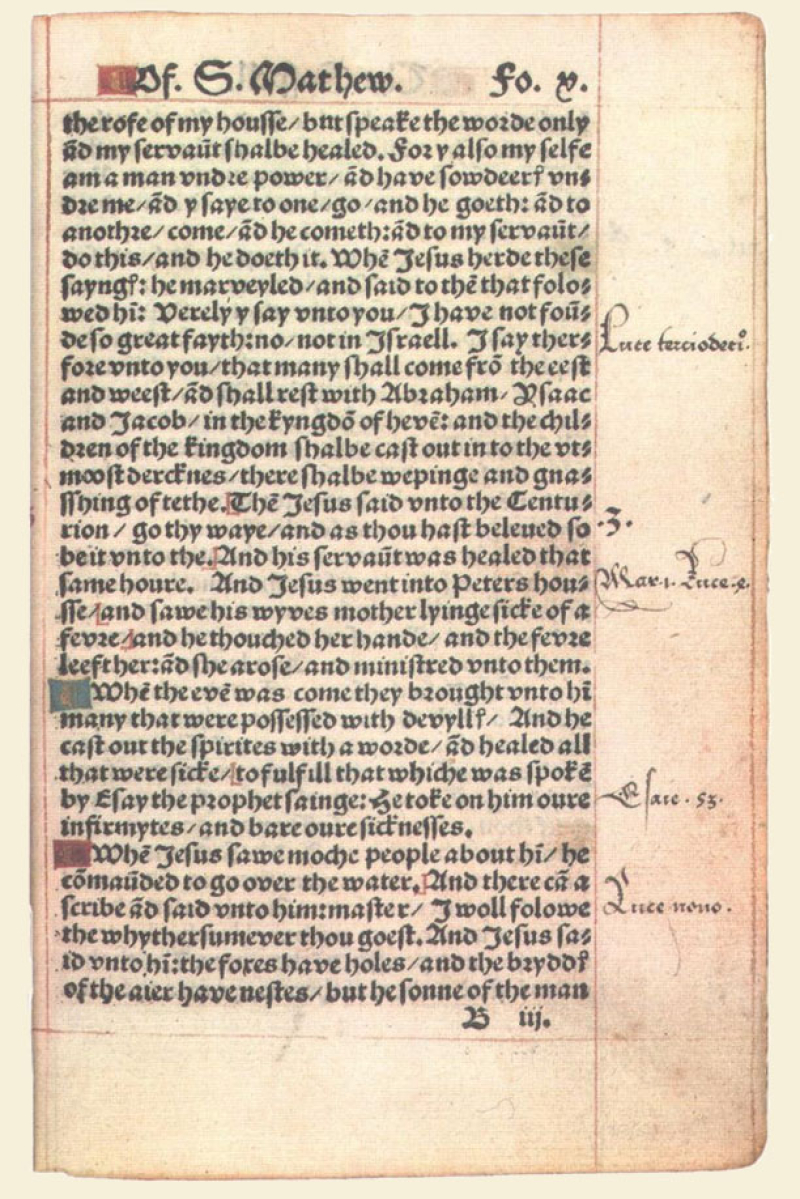 Of. S. Mathew. Fo. x.
the rofe of my housse/ but speake the worde only
ād my servaūt shalbe healed. For y also my selfe
am a man vndre power/ ād have sowdeerꝭ vn⸗
dre me/ ād y saye to one/ go/ and he goeth: ād to
anothre/ come/ ād he cometh: ād to my servaūt/
do this/ and he doeth it. Whē Jesus herde these
sayngꝭ: he marveyled/ and said to thē that folo⸗
wed hī: Verely y say vnto you/ I have not foū⸗
de so great fayth: no/ not in Israell. I say ther⸗
fore vnto you/ that many shall come frō the eest
and weest/ ād shall rest with Abraham/ Ysaac
and Jacob/ in the kyngdō of hevē: and the chil⸗
dren of the kingdom shalbe cast out in to the vt⸗
moost dercknes/ there shalbe wepinge and gna⸗
sshing of tethe. Thē Jesus said vnto the Centu⸗
rion/ go thy waye/ and as thou hast beleued so
be it vnto the. And his servaūt was healed that
same houre. And Jesus went into Peters hou⸗
sse/ and sawe his wyves mother lyinge sicke of a
fevre/ and he thouched her hande/ and the fevre
leeft her: ād she arose/ and ministred vnto them.
Whē the evē was come they brought vnto hī
many that were possessed with devyllꝭ/ And he
cast out the spirites with a worde/ ād healed all
that were sicke/ to fulfill that whiche was spokē
by Esay the prophet sainge: He toke on him oure
infirmytes/ and bare oure sicknesses.
Whē Jesus sawe moche people about hī/ he
cōmaūded to go over the water. And there cā a
scribe ād said vnto him: master/ I woll folowe
the whythersumever thou goest. And Jesus sa⸗
id vnto hī: the foxes have holes/ and the bryddꝭ
of the aier have nestes/ but he sonne of the man
B iij.
Luce terciodeci.
.3.
Mar. 1. Luce
Esaie. 53.
Luce nono.